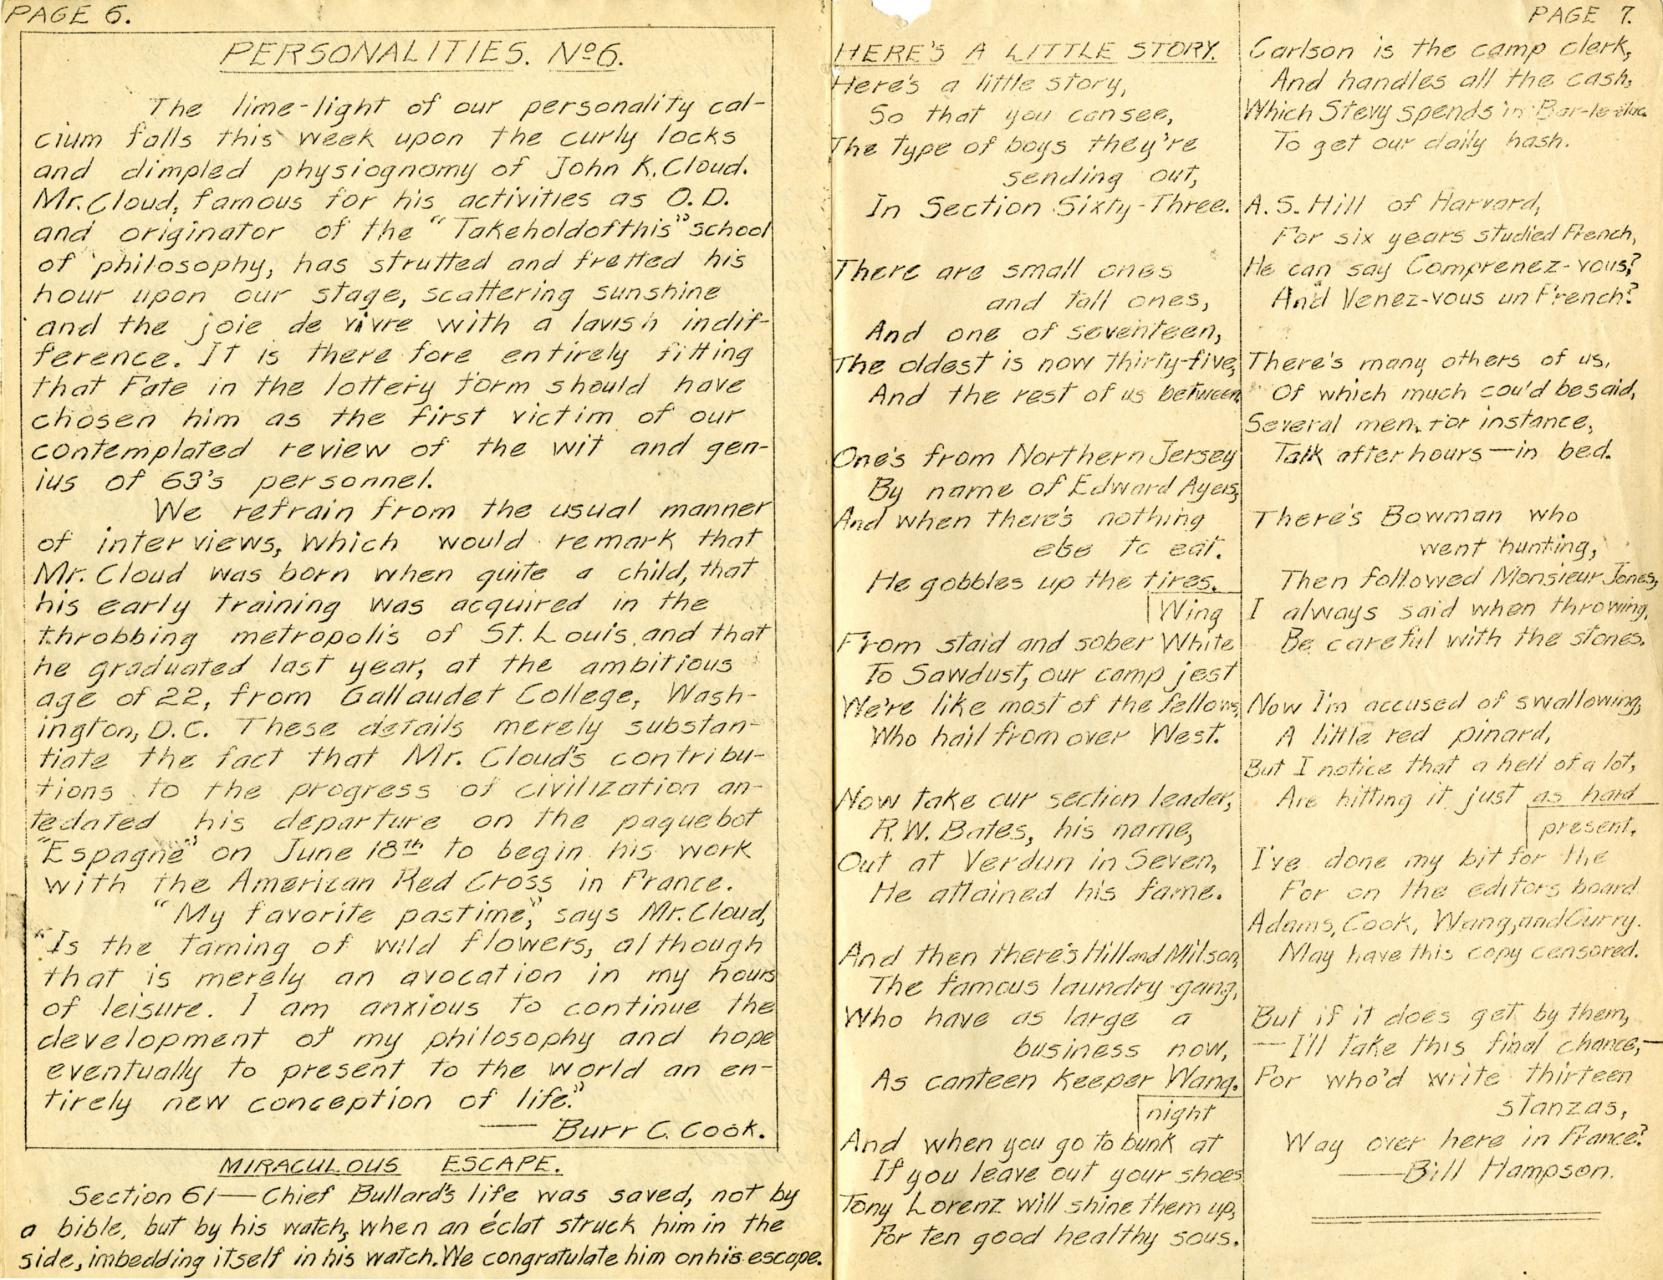 PAGE 6.
PERSONALITIES. Nº6.
The lime-light of our personality cal-
cium falls this week upon the curly locks
and dimpled physiognomy of John K. Cloud.
Mr. Cloud, famous for his activities as O.D.
and originator of the "Takeholdofthis" school
of philosophy, has strutted and fretted his
hour upon our stage, scattering sunshine
and the joie de vivre with a lavish indif-
ference. It is there fore entirely fitting
that Fate in the lottery form should have
chosen him as the first victim of our
contemplated review of the wit and gen-
ius of 63's personnel.
We refrain from the usual manner
of interviews, which would remark that
Mr. Cloud was born when quite a child, that
his early training was acquired in the
throbbing metropolis of St. Louis and that
he graduated last year, at the ambitious
age of 22, from Gallaudet College, Wash-
ington, D.C. These details merely substan-
tiate the fact that Mr. Cloud's contribu-
tions to the progress of civilization an-
tedated his departure on the paquebot
"Espagne" on June 18th to begin his work
with the American Red Cross in France.
"My favorite pastime," says Mr. Cloud,
"Is the taming of wild flowers, although
that is merely an avocation in my hours
of leisure. I am anxious to continue the
development of my philosophy and hope
eventually to present to the world an en-
tirely new conception of life."
— Burr C. Cook.
MIRACULOUS ESCAPE.
Section 61 — Chief Bullard's life was saved, not by
a bible, but by his watch, when an éclat struck him in the
side, imbedding itself in his watch. We congratulate him on his escape.
PAGE 7.
HERE'S A LITTLE STORY.
Here's a little story,
So that you can see,
The type of boys they're
sending out,
In Section Sixty-Three.
There are small ones
and tall ones,
And one of seventeen,
The oldest is now thirty-five,
And the rest of us between.
One's from Northern Jersey
By name of Edward Ayers,
And when there's nothing
else to eat.
He gobbles up the tires.
Wing
From staid and sober White
To Sawdust, our camp jest
We're like most of the fellows,
Who hail from over West.
Now take our section leader,
R.W. Bates, his name,
Out at Verdun in Seven,
He attained his fame.
And then there's Hill and Milson,
The famous laundry gang,
Who have as large a
business now,
As canteen keeper Wang.
night
And when you go to bunk at
If you leave out your shoes
Tony Lorenz will shine them up,
For ten good healthy sous.
Carlson is the camp clerk,
And handles all the cash,
Which Stevy spends in Bar-le-duc
To get our daily hash.
A.S. Hill of Harvard,
For six years studied French,
He can say Comprenez-vous?
And Venez-vous un French?
There's many others of us,
Of which much cou'd be said,
Several men, for instance,
Talk after hours — in bed.
There's Bowman who
went hunting,
Then followed Monsieur Jones,
I always said when throwing,
Be careful with the stones.
Now I'm accused of swallowing,
A little red pinard,
But I notice that a hell of a lot,
Are hitting it just as hard
present.
I've done my bit for the
For on the editors board
Adams, Cook, Wang, and Curry.
May have this copy censored.
But if it does get by them,
— I'll take this final chance, —
For who'd write thirteen
stanzas,
Way over here in France?
— Bill Hampson.